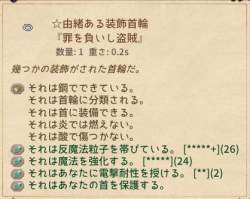 ☆由緒ある装飾首輪
『罪を負いし盗賊』
数量: 1 重さ: 0.2s
幾つかの装飾がされた首輪だ。
それは鋼でできている。
それは首輪に分類される。
それは首に装備できる。
それは炎では燃えない。
それは酸で傷つかない。
それは反魔法粒子を帯びている。 [*****+](26)
それは魔法を強化する。 [*****](24)
それはあなたに電撃耐性を授ける。 [**](2)
それはあなたの首を保護する。